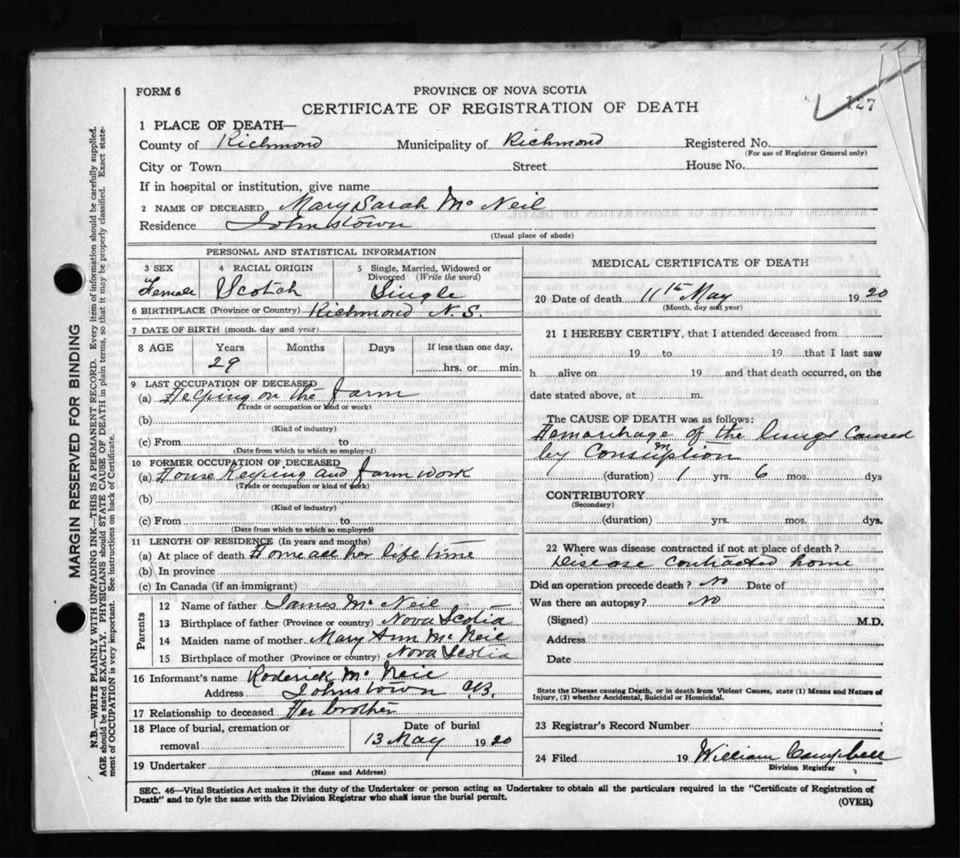 FORM 6
PROVINCE OF NOVA SCOTIA
127
CERTIFICATE OF REGISTRATION OF DEATH
1 PLACE OF DEATH—
County of Richmond Municipality of Richmond Registered No.
(For use of Registrar General only)
City or Town Street House No.
If in hospital or institution, give name
2 NAME OF DECEASED Mary Sarah Mc Neil
Residence Johnstown
(Usual place of abode)
PERSONAL AND STATISTICAL INFORMATION
3 SEX 4 RACIAL ORIGIN 5 Single, Married, Widowed or Divorced (Write the word)
Female Scotch Single
6 BIRTHPLACE (Province or Country) Richmond N.S.
7 DATE OF BIRTH (month, day and year)
8 AGE Years Months Days If less than one day,
29 hrs. or min.
9 LAST OCCUPATION OF DECEASED
(a) Helping on the farm
(Trade or occupation or kind or work)
(b)
(Kind of industry)
(c) From to
(Date from which to which so employed)
10 FORMER OCCUPATION OF DECEASED
(a) House Keeping and farm work
(Trade or occupation or kind of work)
(b)
(Kind of industry)
(c) From to
(Date from which to which so employed)
11 LENGTH OF RESIDENCE (In years and months)
(a) At place of death Home all her life time
(b) In province
(c) In Canada (if an immigrant)
Parents
12 Name of father James Mc Neil
13 Birthplace of father (Province or country) Nova Scotia
14 Maiden name of mother Mary Ann Mc Neil
15 Birthplace of mother (Province or country) Nova Scotia
16 Informant's name Roderick Mc Neil
Address Johnstown C.B.
17 Relationship to deceased Her brother
18 Place of burial, cremation or removal Date of burial
13 May 1920
19 Undertaker
(Name and Address)
MEDICAL CERTIFICATE OF DEATH
20 Date of death 11th May 1920
(Month, day and year)
21 I HEREBY CERTIFY, that I attended deceased from
19 to 19 that I last saw
h alive on 19 and that death occurred, on the
date stated above, at m.
The CAUSE OF DEATH was as follows:
Hemorrhage of the lungs caused
by Consumption
(duration) 1 yrs. 6 mos. dys
CONTRIBUTORY
(Secondary)
(duration) yrs. mos. dys.
22 Where was disease contracted if not at place of death?
Disease contracted home
Did an operation precede death? No Date of
Was there an autopsy? No
(Signed) M.D.
Address
Date
State the Disease causing Death, or in death from Violent Causes, state (1) Means and Nature of
Injury, (2) whether Accidental, Suicidal or Homicidal.
23 Registrar's Record Number
24 Filed 19 William Campbell
Division Registrar
SEC. 46—Vital Statistics Act makes it the duty of the Undertaker or person acting as Undertaker to obtain all the particulars required in the "Certificate of Registration of
Death" and to fyle the same with the Division Registrar who shall issue the burial permit.
(OVER)
MARGIN RESERVED FOR BINDING
N.B.—WRITE PLAINLY WITH UNFADING INK—THIS IS A PERMANENT RECORD. Every item of information should be carefully supplied.
AGE should be stated EXACTLY. PHYSICIANS should STATE CAUSE OF DEATH in plain terms, so that it may be properly classified. Exact state-
ment of OCCUPATION is very important. See instructions on back of Certificate.